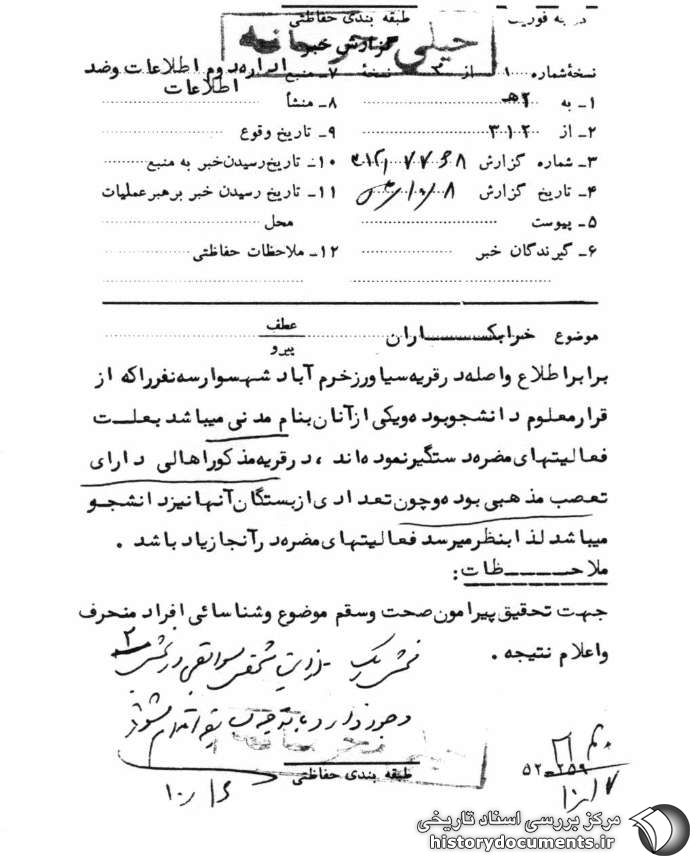 درجه فوریت
طبقه بندی حفاظتی
گزارش خبر
خیلی محرمانه
نسخهٔ شماره ۱ از ۳ نسخهٔ
۷ـ منبع اداره دوم اطلاعات وضد اطلاعات
۱ـ به ۲هـ
۸ـ منشأ
۲ـ از ۳۱۲
۹ـ تاریخ وقوع
۳ـ شماره گزارش
۱۰ـ تاریخ رسیدن خبر به منبع
۴ـ تاریخ گزارش
۱۱ـ تاریخ رسیدن خبر برهبر عملیات
۵ـ پیوست
محل
۶ـ گیرندگان خبر
۱۲ـ ملاحظات حفاظتی
موضوع خرابکـــاران
عطف
پیرو
برابر اطلاع واصله در قریه سیاورز خرم آباد شهسوار سه نفر را که از
قرار معلوم دانشجو بوده و یکی از آنان بنام مدنی میباشد بعلـت
فعالیتهای مضره دستگیر نموده اند ، در قریه مذکور اهالی دارای
تعصب مذهبی بوده و چون تعدادی از بستگان آنها نیز دانشجـو
میباشد لذا بنظر میرسد فعالیتهای مضره در آنجا زیاد باشد .
ملاحـــظات:
جهت تحقیق پیرامون صحت وسقم موضوع وشناسائی افراد منحرف
واعلام نتیجه .
وجود ندارد
خیلی محرمانه
طبقه بندی حفاظتی
۵۲-۲۵۹
مرکز بررسی اسناد تاریخی
historydocuments.ir